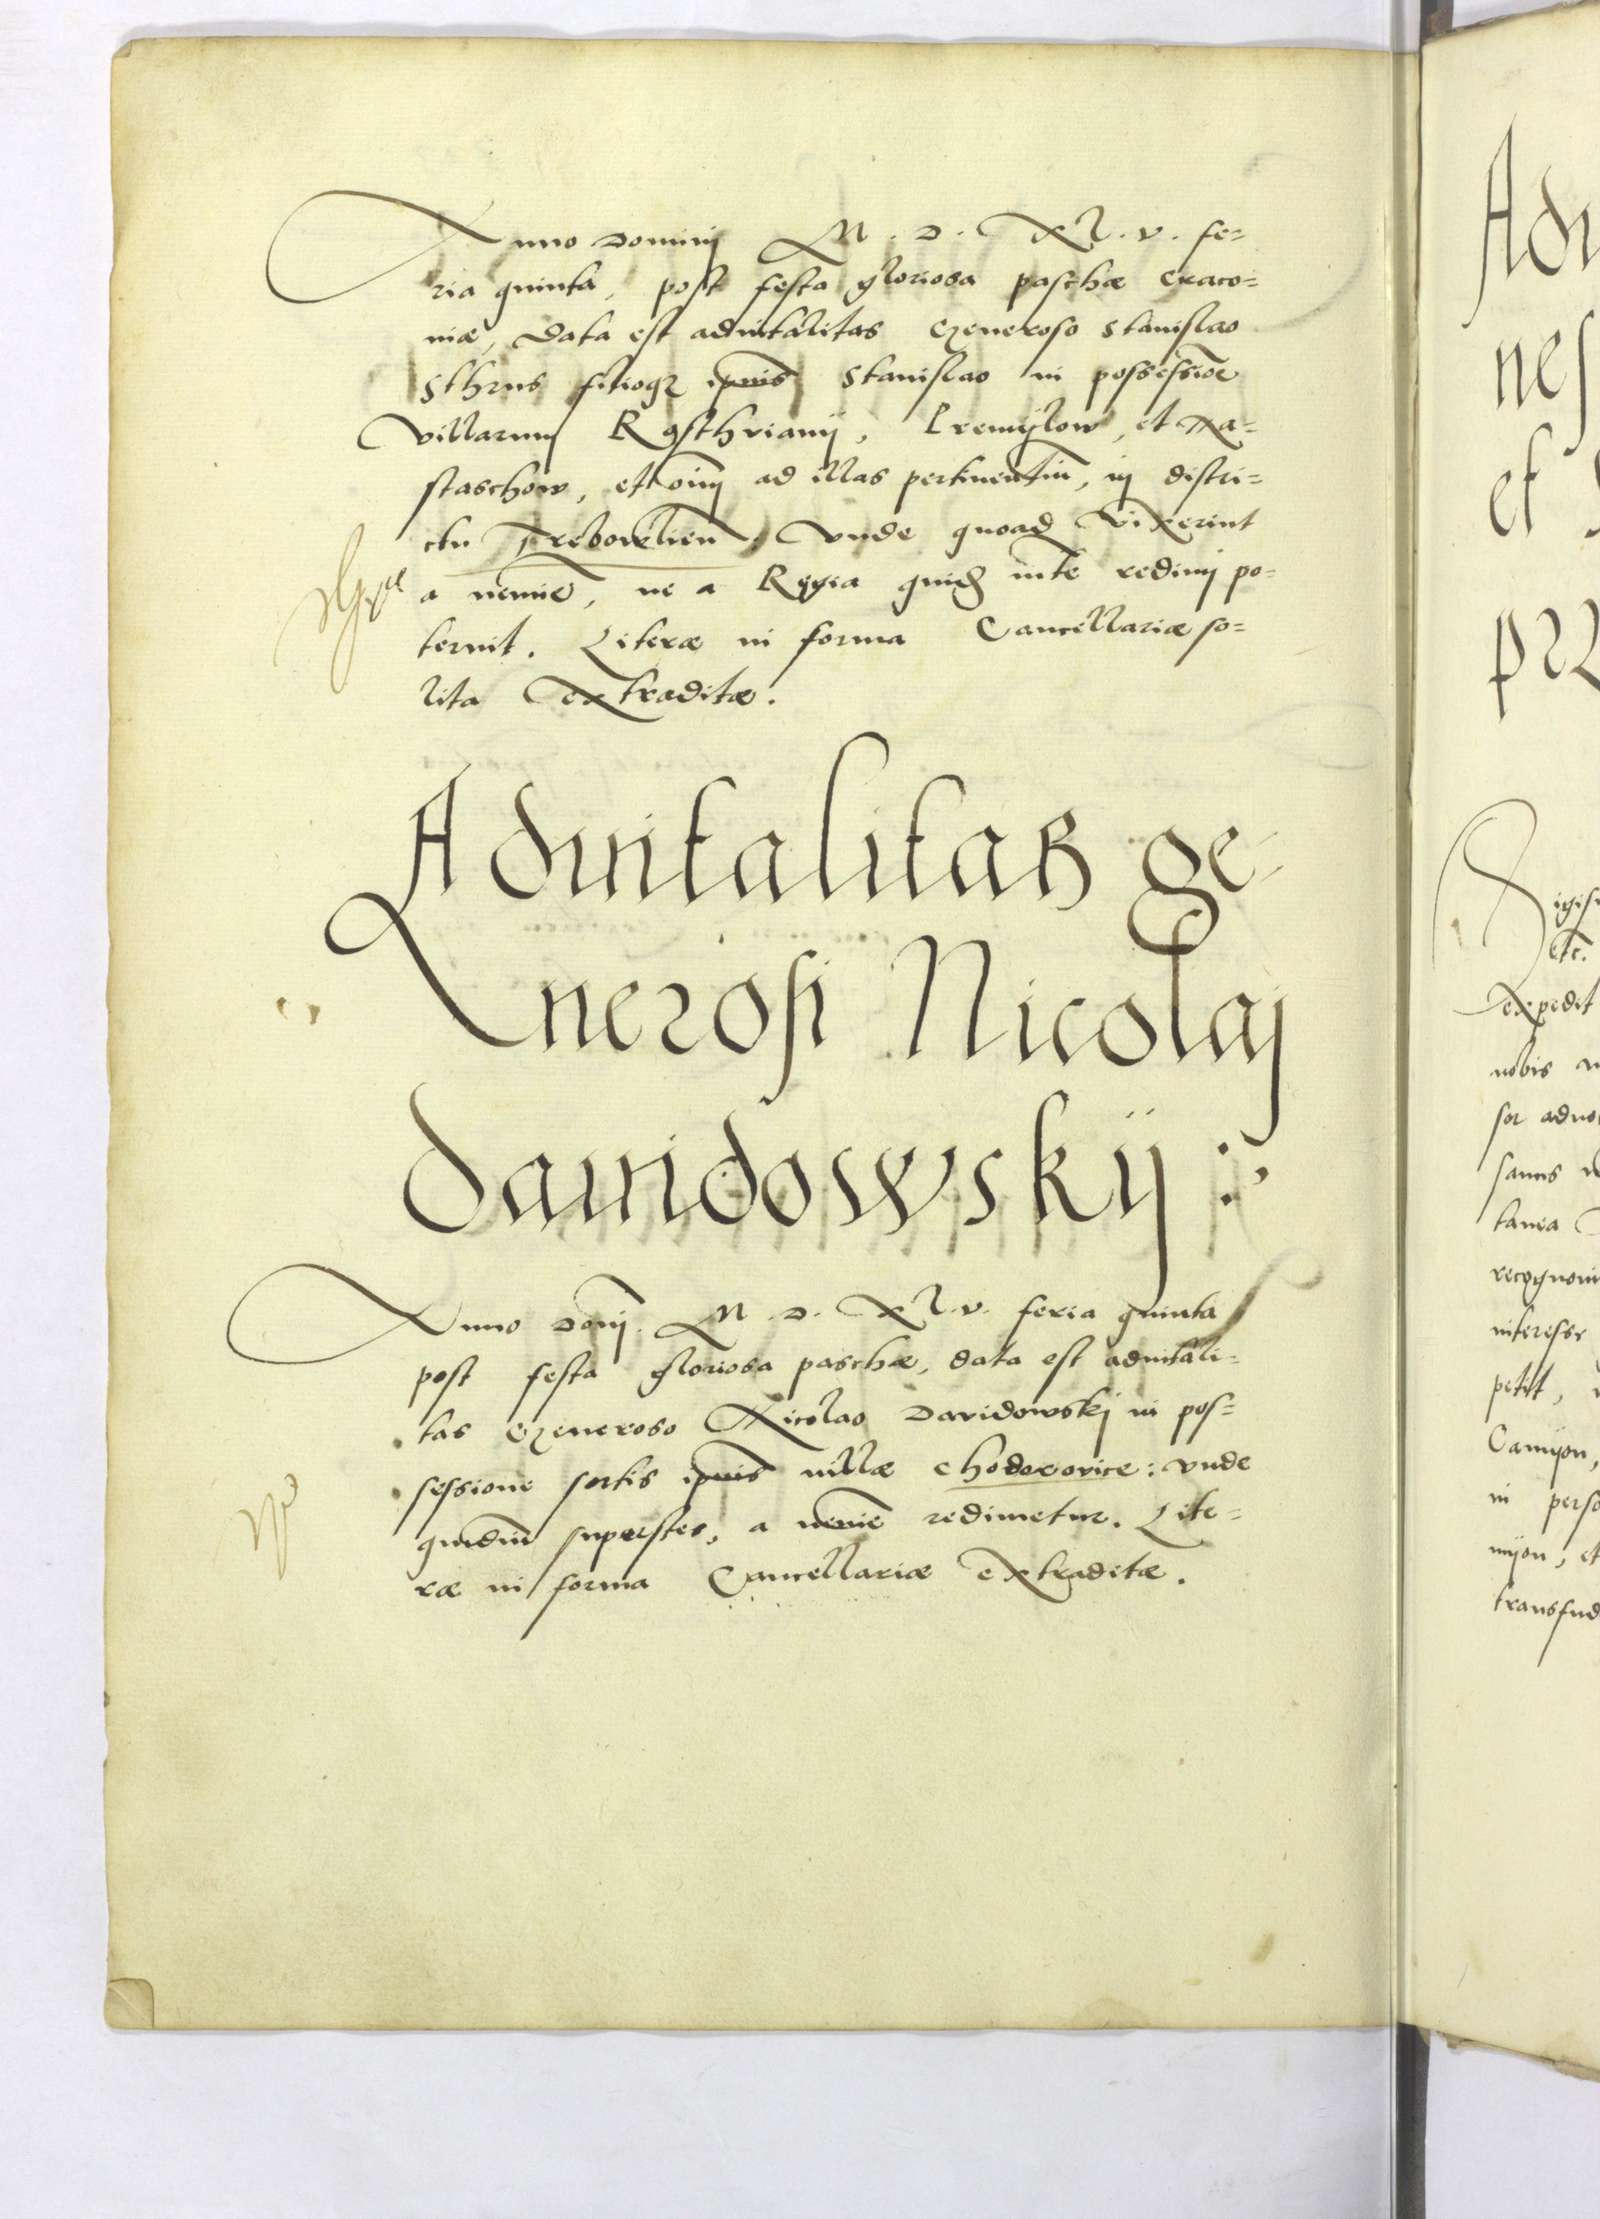 Anno Dominj M. D. XL. v. fe=
ria quinta, post festa gloriosa paschæ Craco=
niæ, data est aduitalitas Generoso Stanislao
Sthrus filioqz ipsius Stanislao in possessione
villarum Rosthvianij, Premijlow, et Na=
staschow, et oim ad illas pertinentiu, in distri=
ctu Trebowlien. Vnde quoad vixerint
a nemine, ne a Regia quidem mte redimj po=
terunt. Literæ in forma Cancellariæ so=
lita Extraditæ.
Aduitalitas ge-
nerosi Nicolaj
dauidowskij :
Anno Donj. M. D. XL. v. feria quinta
post festa gloriosa paschæ, data est aduitali=
tas Generoso Nicolao Davidowskj in pos=
sessione sortis ipsius uillæ Chodorovice: vnde
quidiu superstes, a nemie redimetur. Lite=
ræ in forma Cancellariæ Extraditæ.
Adu
nes
et
prz
Sigis
etc.
Expedit
nobis
sor aduo
sanus
tanea
recognoui
interesse
petit,
Camijon,
in perso
mijon, et
transfud